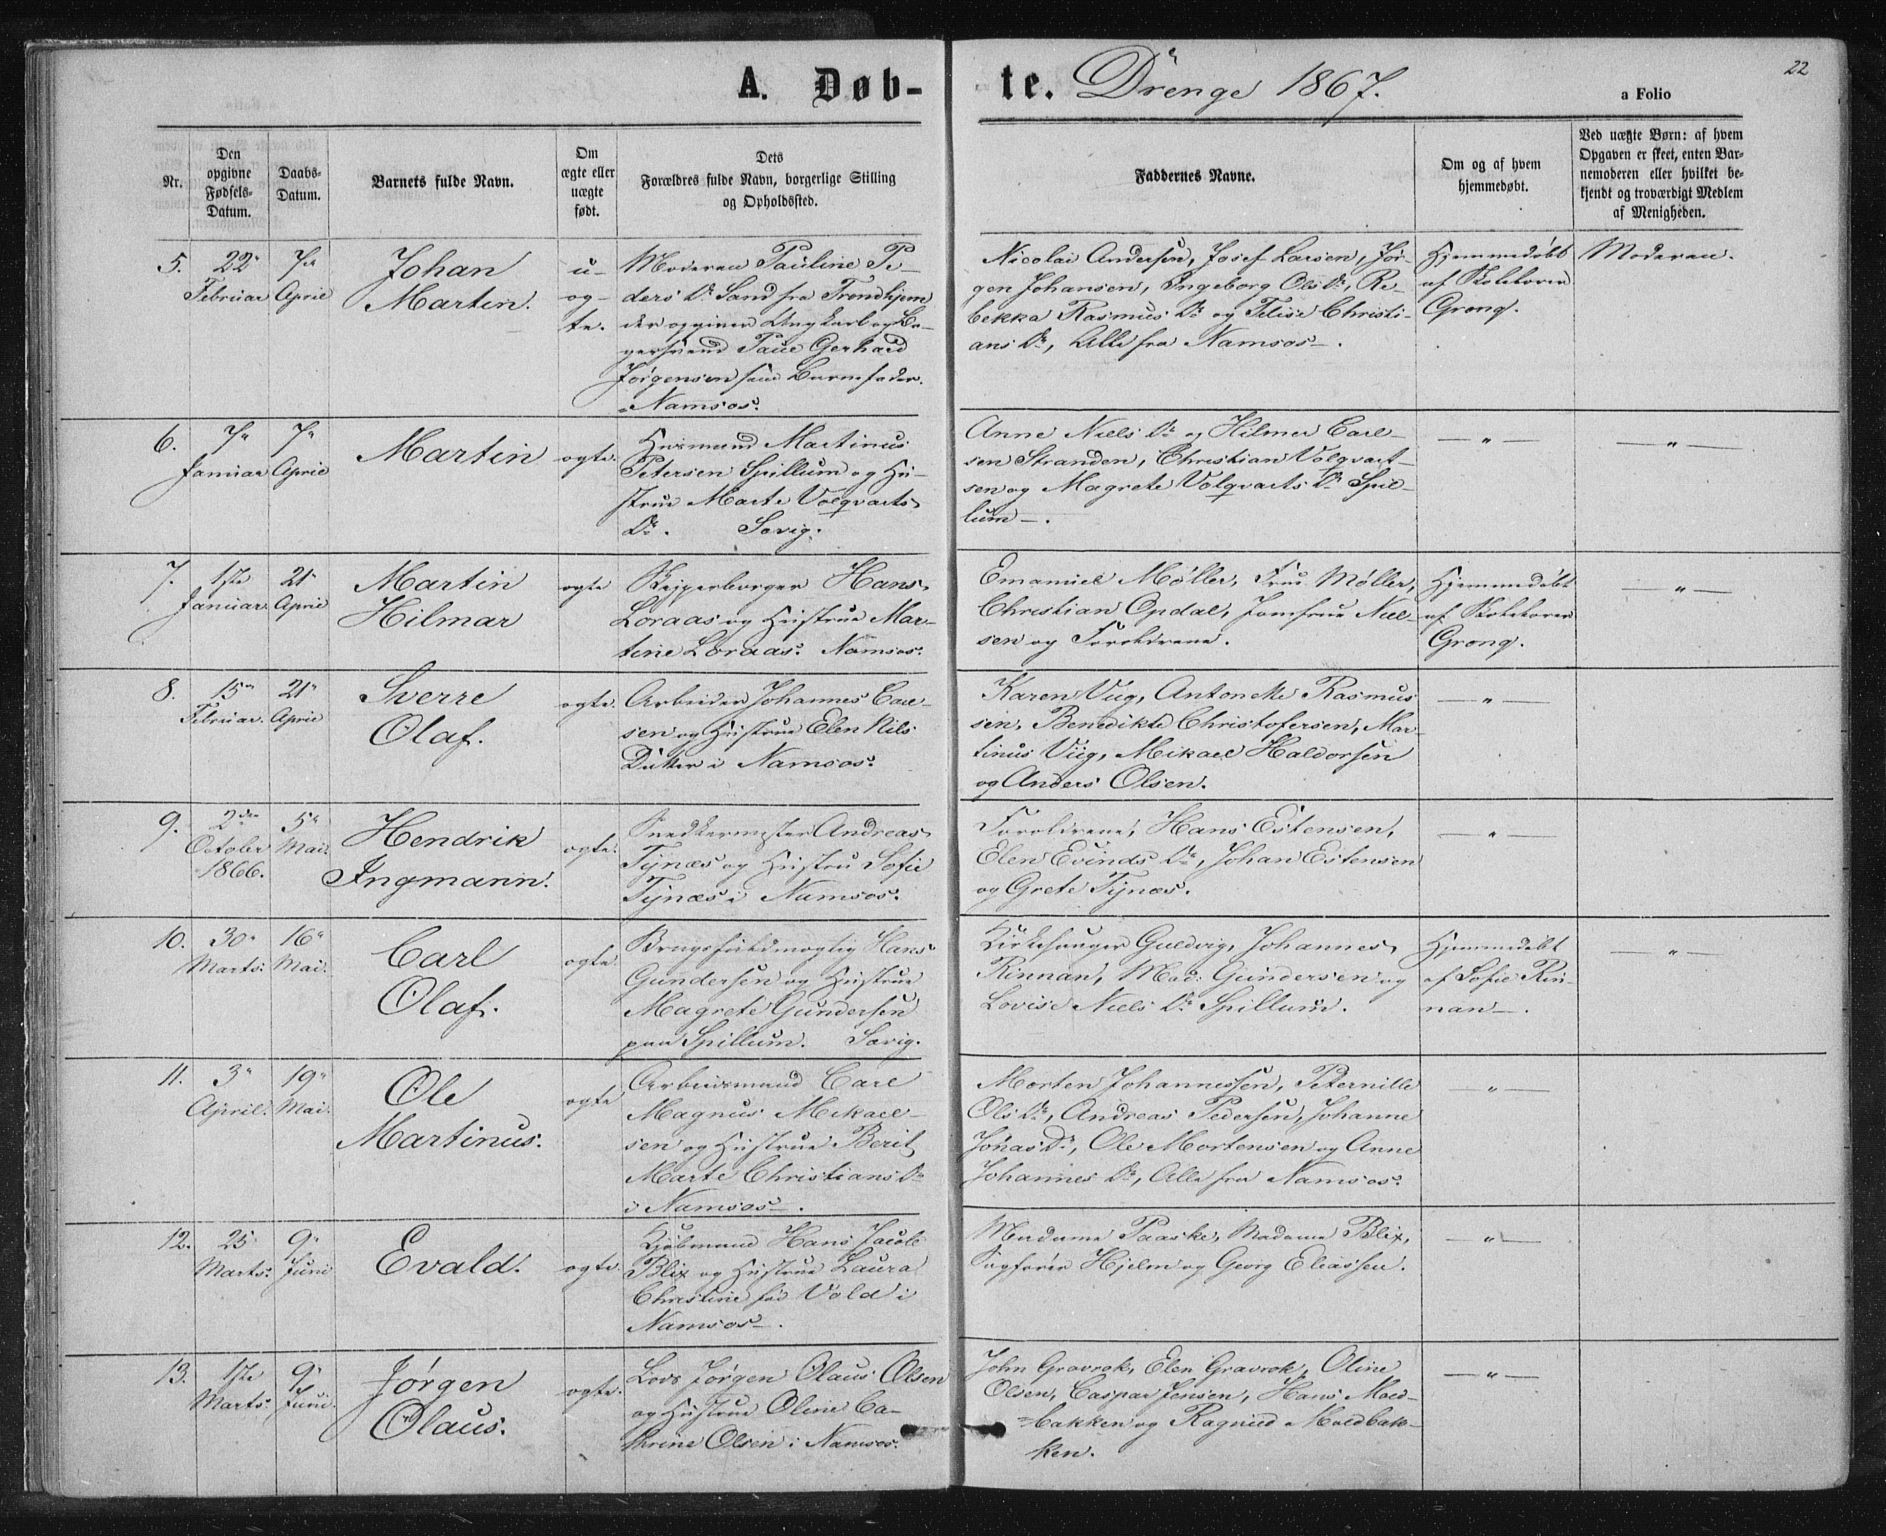 A. Døb-
te. Drenge 1867.
22
a Folio
Nr.
Den
opgivne
Fødsels-
Datum.
Daabs-
Datum.
Barnets fulde Navn.
Om
ægte eller
uægte
født.
Dets
Forældres fulde Navn, borgerlige Stilling
og Opholdssted.
Faddernes Navne.
Om og af hvem
hjemmedøbt.
Ved uægte Børn: af hvem
Opgaven er skeet, enten Bar-
nemoderen eller hvilket be-
kjendt og troværdigt Medlem
af Menigheden.
5.
22
Februar
7de
April
Johan
Martin.
u-
æg-
te.
Moderen Pauline Pe-
ders Dr Sand fra Trondhjem
der opgiver Ungkarl og Ba-
gersvend Paul Gerhard
Jørgensen som Barnefader.
Namsos.
Nicolai Andersen, Josef Larsen, Jør-
gen Johansen, Ingeborg Ols Dr, Re-
bekka Rasmus Dr og Felise Christi-
ans Dr, Alle fra Namsos.
Hjemmedøbt
af
Grong.
Moderen.
6.
7de
Januar
7de
April
Martin
ægte.
Husmand Martinus
Petersen Spillum og Hu-
strue Marte Volqvarts
Dr. Sævig.
Anne Niels Dr og Hilmer Carl-
sen Stranden, Christian Volqvart-
sen og Magrete Volqvarts Dr Spil-
lum.
— " —
— " —
7.
1ste
Januar
21
April
Martin
Hilmar
ægte
Skipperborger Hans
Loraas og Hustrue Mar-
tine Loraas. Namsos.
Emanuel Møller, Frue Møller,
Christian Opdal, Jomfrue Niel-
sen og Forældrene.
Hjemmedøbt
af
Grong.
— " —
8.
15de
Februar.
21
April
Sverre
Olaf.
ægte.
Arbeider Johannes Carl-
sen og Hustrue Elen Nils
Datter i Namsos.
Karen Viig, Antonette Rasmus
sen, Benedikte Christofersen, Mar-
tinus Viig, Mikael Haldorsen
og Anders Olsen.
— " —
9.
2den
October
1866.
5te
Mai.
Hendrik
Ingmann.
ægte.
Snedkermester Andreas
Tynæs og Hustru Sofie
Tynæs i Namsos.
Forældrene, Hans Estensen,
Elen Evinds Dr, Johan Estensen
og Grete Tynæs.
— " —
10.
30
Marts.
16
Mai.
Carl
Olaf.
ægte.
Brugsfuldmægtig Hans
Gundersen og Hustrue
Magrete Gundersen
paa Spillum. Sævig.
Kirkesanger Guldvig, Johannes
Rinnan, Mad: Gundersen og
Lovise Niels Dr Spillum.
Hjemmedøbt
af Sofie Rin-
nan.
— " —
11.
3
April.
19
Mai.
Ole
Martinus.
ægte
Arbeidsmand Carl
Magnus Mikael-
sen og Hustrue Berit
Marte Christians Dr
i Namsos.
Morten Johannessen, Peternille
Ols Dr, Andreas Pedersen, Johanne
Jonas Dr, Ole Mortensen og Anne
Johannes Dr, Alle fra Namsos.
— " —
12.
25
Marts.
9
Juni
Evald.
ægte.
Kjøbmand Hans Jacob
Blix og Hustrue Laura
Christine fød Vold i
Namsos.
Madame Paaske, Madame Blix,
Sagfører Hjelm og Georg Eliassen.
— " —
13.
1ste
Marts.
9
Juni.
Jørgen
Olaus.
ægte.
Lods Jørgen Olaus Olsen
og Hustrue Oline Ca-
thrine Olsen i Namsos.
John Gravrok, Elen Gravrok, Oline
Olsen, Caspar Jensen, Hans Mold-
bakken og Ragnild Moldbak-
ken.
— " —